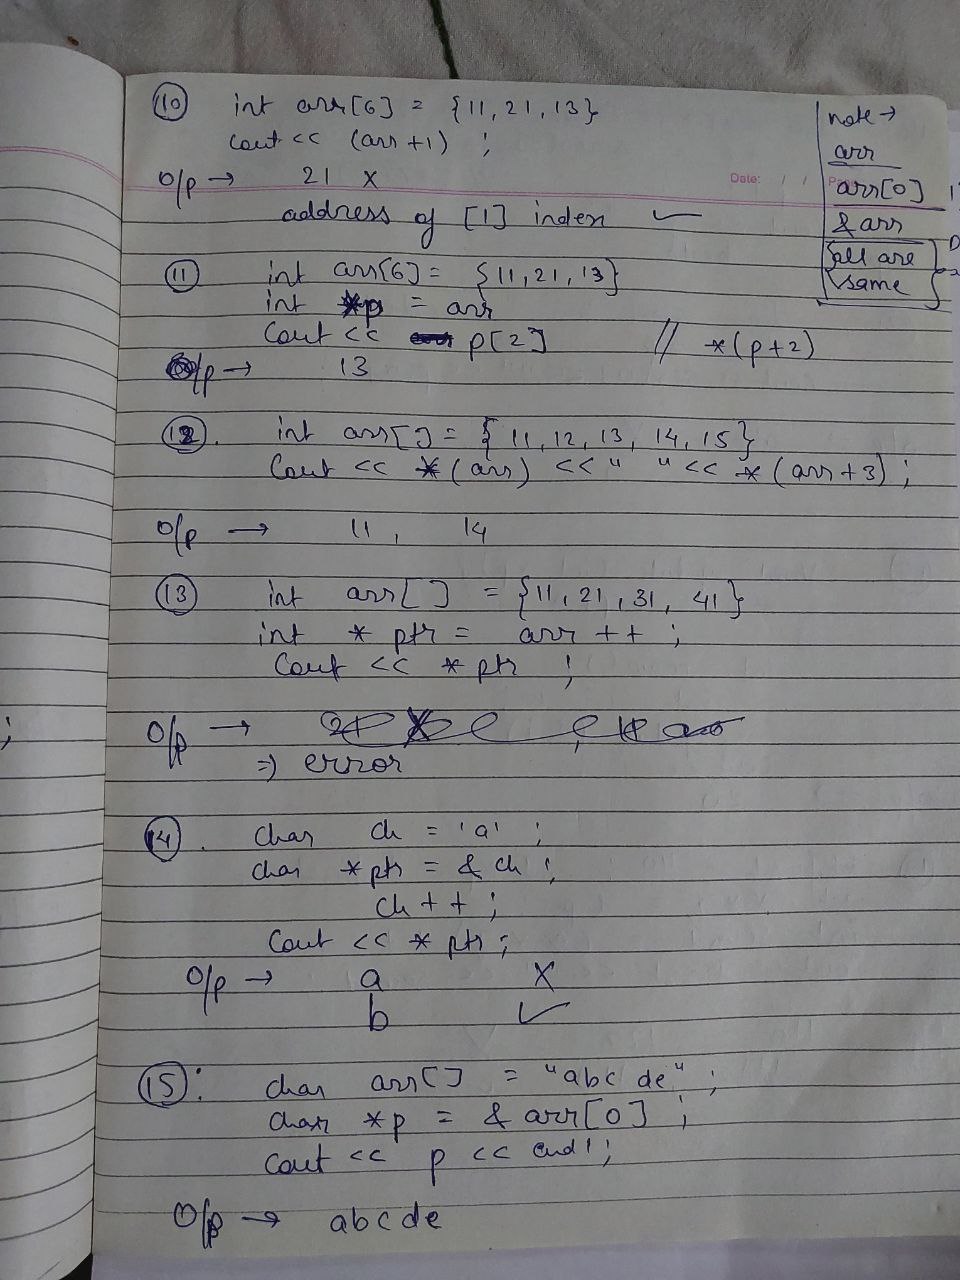 (10) int arr[6] = {11, 21, 13}
cout << (arr +1) ;
O/p → 21 X
address of [1] index ✓
note →
arr
arr[0]
& arr
{all are
same}
Date: / /
(11) int arr[6] = {11, 21, 13}
int *p = arr
Cout << p[2] // *(p+2)
O/p → 13
(12). int arr[] = { 11, 12, 13, 14, 15}
Cout << *(arr) << " " << *(arr+3) ;
O/p → 11, 14
(13) int arr[ ] = {11, 21, 31, 41}
int * ptr = arr ++ ;
Cout << * ptr ;
O/p →
⇒ error
(14). char ch = 'a' ;
char *ptr = & ch ;
ch + + ;
Cout << * ptr ;
O/p → a X
b ✓
(15): char arr[] = "abc de" ;
char *p = & arr[0] ;
Cout << p << endl ;
O/p → abcde
;